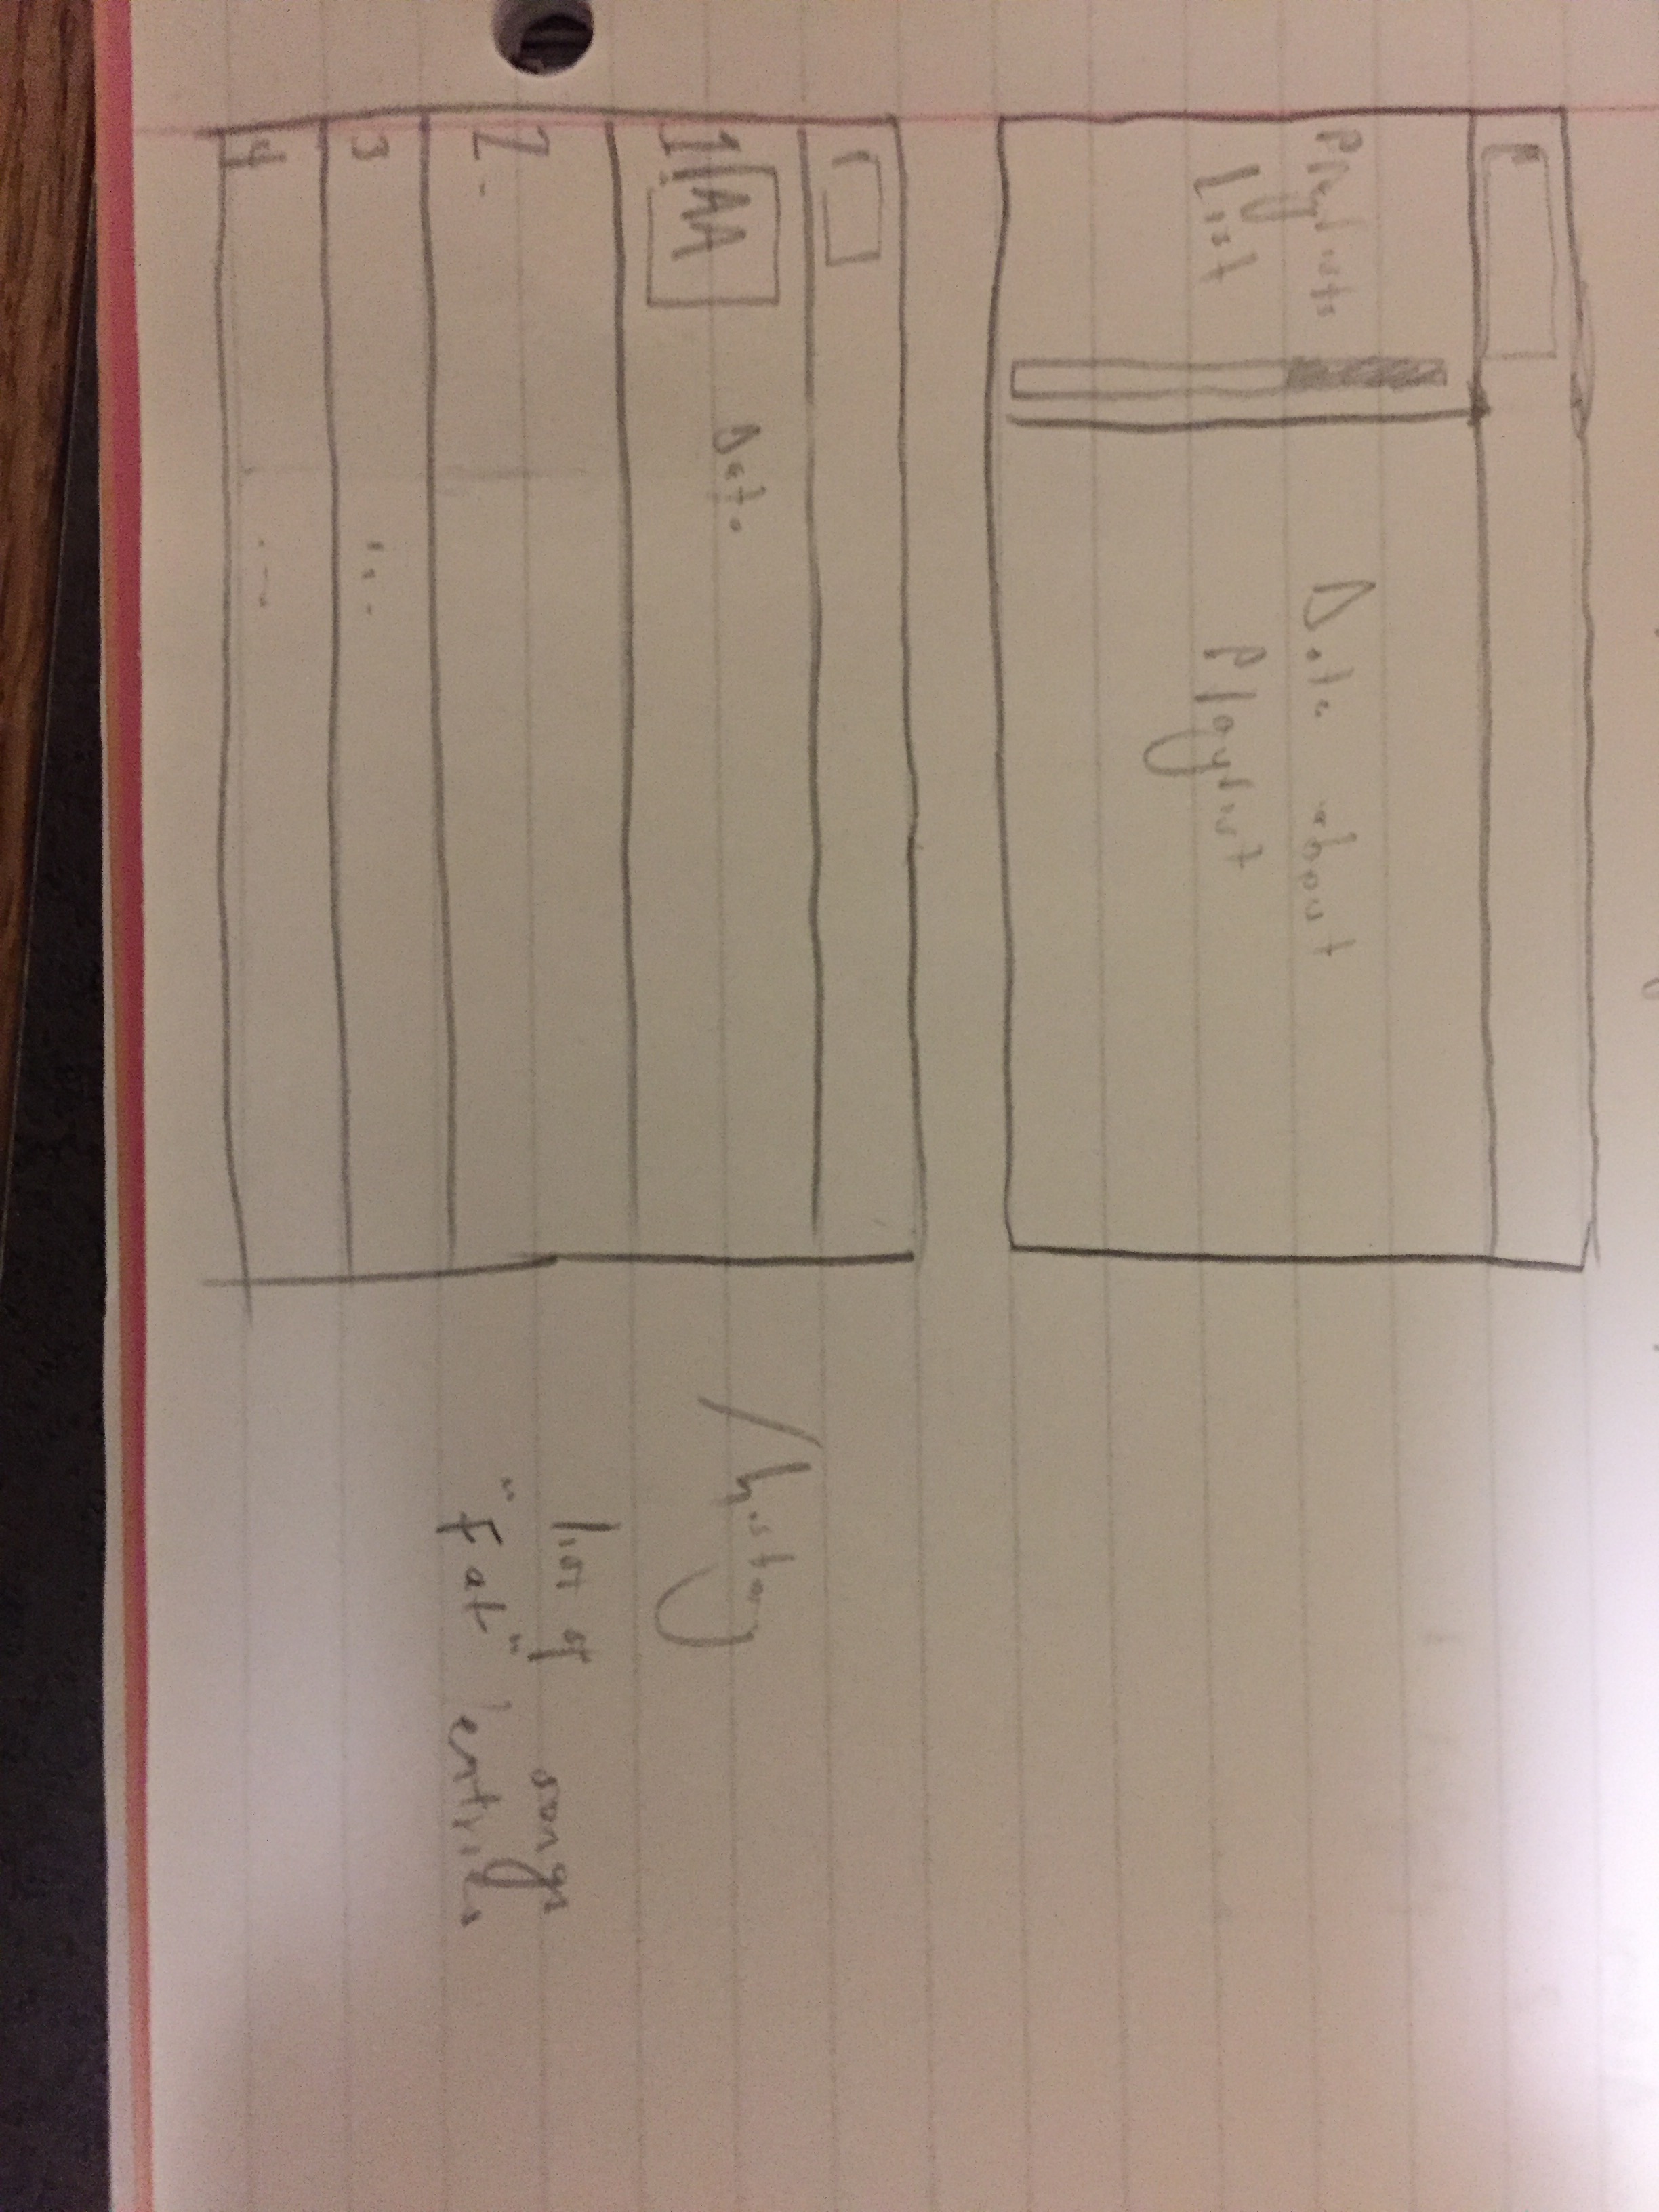 Playlists
List
Data about
Playlist
1
AA
Data
2
3
4
/history
list of songs
"Fat" entries